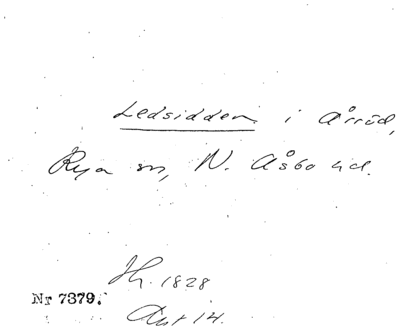 Ledsidden i Årröd,
Rya sn, N. Åsbo hd.
Hz. 1828
Nr 7379.
Art 14.